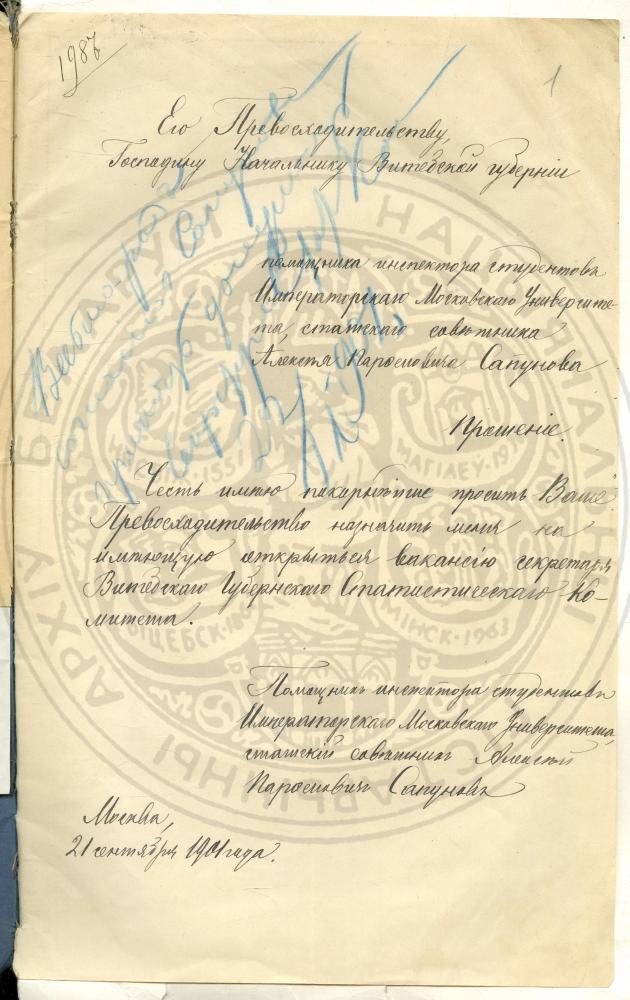 1987
1
Его Превосходительству,
Господину Начальнику Витебской губерніи
помощника инспектора студентовъ
Императорскаго Московскаго Университе-
та, статскаго совѣтника
Алексѣя Парѳеновича Сапунова
Прошеніе.
Честь имѣю покорнѣйше просить Ваше
Превосходительство назначить меня на
имѣющую открыться вакансію секретаря
Витебскаго Губернскаго Статистическаго Ко-
митета.
Помощникъ инспектора студентовъ
Императорскаго Московскаго Университета,
статскій совѣтникъ Алексѣй
Парѳеновичъ Сапуновъ
Москва,
21 сентября 1901 года.